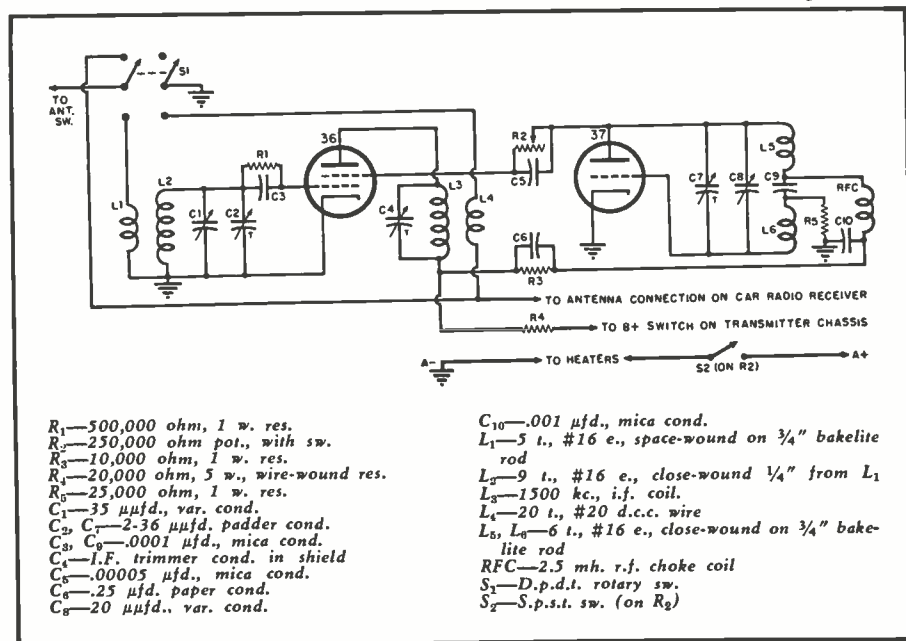 S1
TO
ANT.
SW.
36
37
R1
R2
L5
C5
C7
C8
C9
RFC
L2
L3
L1
C1
C2
C3
C4
L4
T
T
T
R5
C10
L6
C6
R3
TO ANTENNA CONNECTION ON CAR RADIO RECEIVER
R4
TO B+ SWITCH ON TRANSMITTER CHASSIS
A-
TO HEATERS
A+
S2 (ON R2)
R₁—500,000 ohm, 1 w. res.
R₂—250,000 ohm pot., with sw.
R₃—10,000 ohm, 1 w. res.
R₄—20,000 ohm, 5 w., wire-wound res.
R₅—25,000 ohm, 1 w. res.
C₁—35 μμfd., var. cond.
C₂, C₇—2-36 μμfd. padder cond.
C₃, C₉—.0001 μfd., mica cond.
C₄—I.F. trimmer cond. in shield
C₅—.00005 μfd., mica cond.
C₆—.25 μfd. paper cond.
C₈—20 μμfd., var. cond.
C₁₀—.001 μfd., mica cond.
L₁—5 t., #16 e., space-wound on 3/4" bakelite
rod
L₂—9 t., #16 e., close-wound 1/4" from L₁
L₃—1500 kc., i.f. coil.
L₄—20 t., #20 d.c.c. wire
L₅, L₆—6 t., #16 e., close-wound on 3/4" bake-
lite rod
RFC—2.5 mh. r.f. choke coil
S₁—D.p.d.t. rotary sw.
S₂—S.p.s.t. sw. (on R₂)